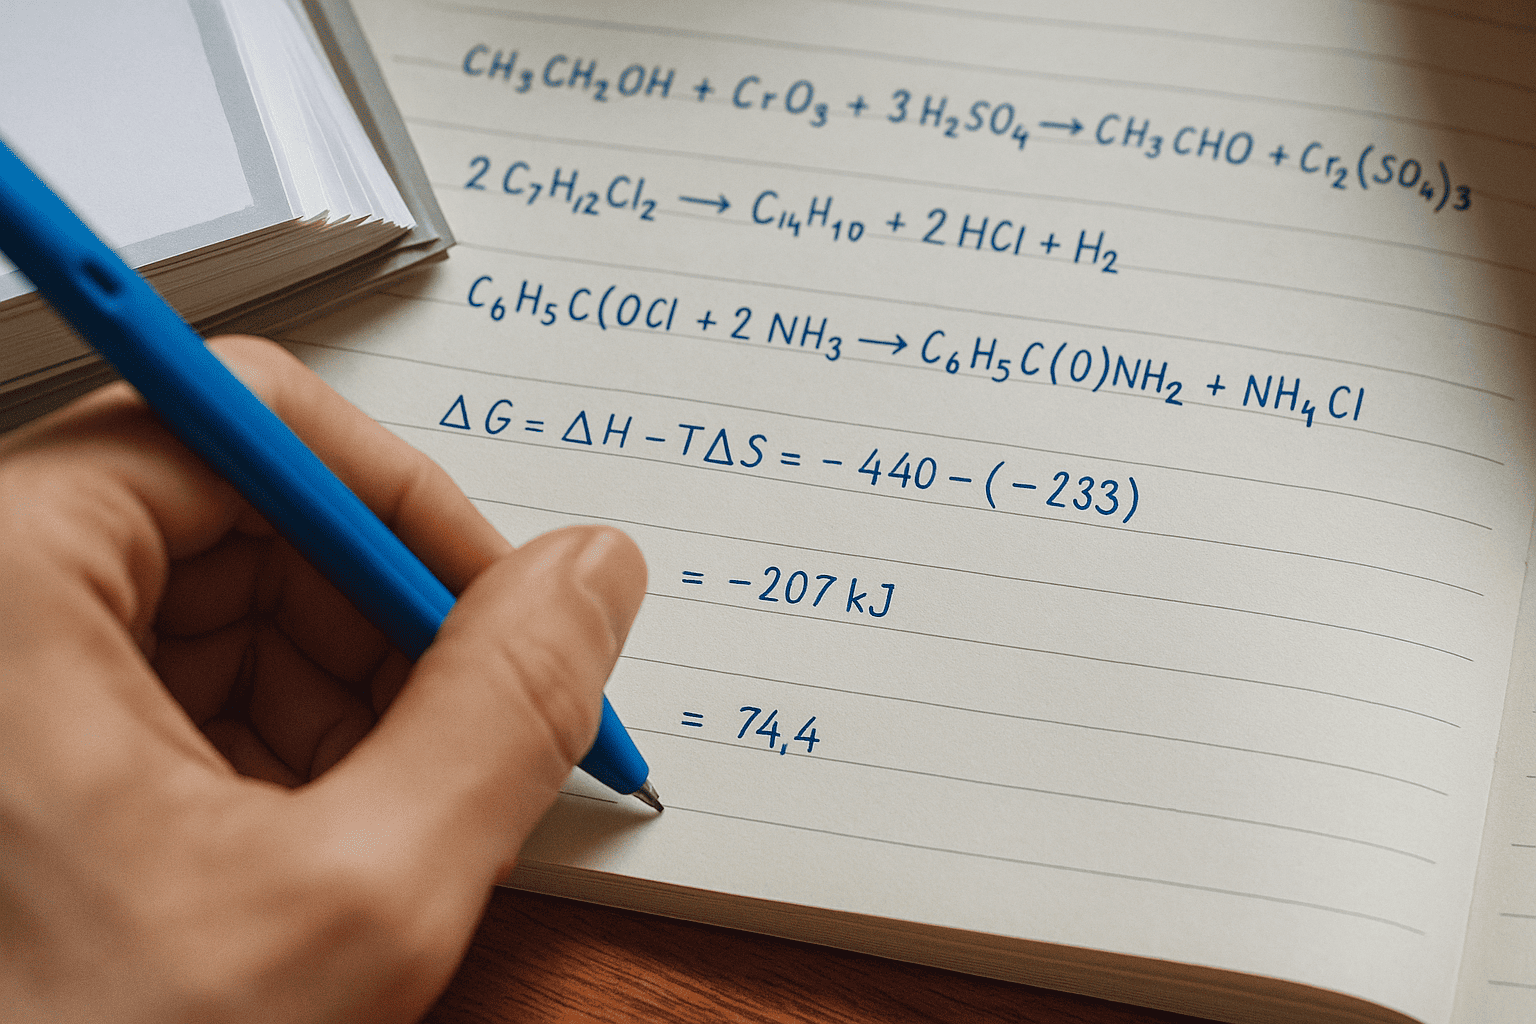 CH₃CH₂OH + CrO₃ + 3H₂SO₄ → CH₃CHO + Cr₂(SO₄)₃
2 C₇H₁₂Cl₂ → C₁₄H₁₀ + 2HCl + H₂
C₆H₅C(OCl + 2 NH₃ → C₆H₅C(O)NH₂ + NH₄Cl
ΔG = ΔH − TΔS = − 440 − (− 233)
= −207 kJ
= 74,4